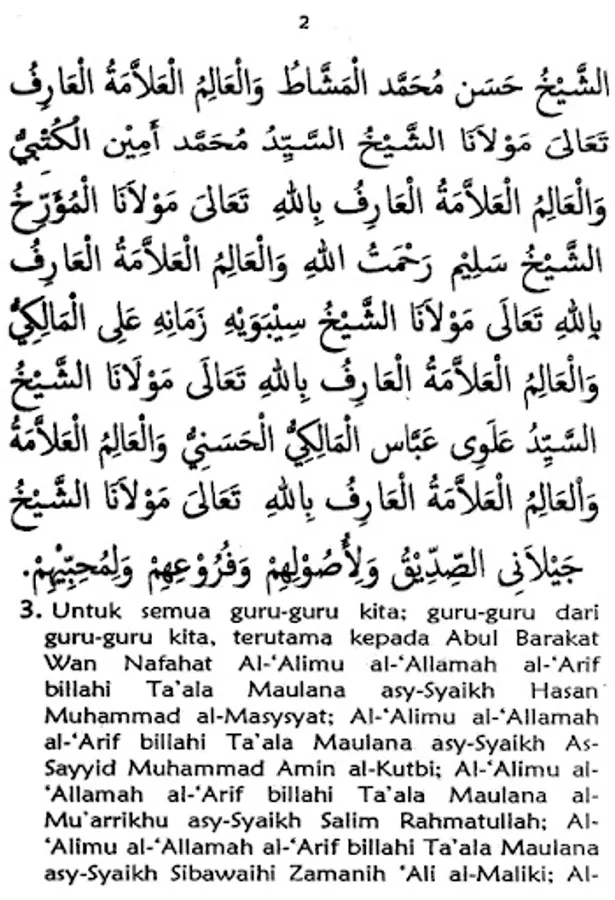 2
الشَّيْخُ حَسَن مُحَمَّد الْمَشَّاطُ وَالْعَالِمُ الْعَلاَّمَةُ الْعَارِفُ
تَعَالىَ مَوْلاَنَا الشَّيْخُ السَّيِّدُ مُحَمَّد أَمِيْن الْكُتْبِيُّ
وَالْعَالِمُ الْعَلاَّمَةُ الْعَارِفُ بِاللهِ تَعَالىَ مَوْلاَنَا الْمُؤَرِّخُ
الشَّيْخُ سَلِيْم رَحْمَتُ اللهِ وَالْعَالِمُ الْعَلاَّمَةُ الْعَارِفُ
بِاللهِ تَعَالَى مَوْلاَنَا الشَّيْخُ سِيْبَوَيْهِ زَمَانِهِ عَلِى الْمَالِكِيُّ
وَالْعَالِمُ الْعَلاَّمَةُ الْعَارِفُ بِاللهِ تَعَالَى مَوْلاَنَا الشَّيْخُ
السَّيِّدُ عَلَوِى عَبَّاس الْمَالِكِيُّ الْحَسَنِيُّ وَالْعَالِمُ الْعَلاَّمَةُ
وَالْعَالِمُ الْعَلاَّمَةُ الْعَارِفُ بِاللهِ تَعَالىَ مَوْلاَنَا الشَّيْخُ
جَيْلاَنِى الصِّدِّيْقُ وَلِأُصُوْلِهِمْ وَفُرُوْعِهِمْ وَلِمُحِبِّيْهِمْ.
3. Untuk semua guru-guru kita; guru-guru dari
guru-guru kita, terutama kepada Abul Barakat
Wan Nafahat Al-‘Alimu al-‘Allamah al-‘Arif
billahi Ta’ala Maulana asy-Syaikh Hasan
Muhammad al-Masysyat; Al-‘Alimu al-‘Allamah
al-‘Arif billahi Ta’ala Maulana asy-Syaikh As-
Sayyid Muhammad Amin al-Kutbi; Al-‘Alimu al-
‘Allamah al-‘Arif billahi Ta’ala Maulana al-
Mu’arrikhu asy-Syaikh Salim Rahmatullah; Al-
‘Alimu al-‘Allamah al-‘Arif billahi Ta’ala Maulana
asy-Syaikh Sibawaihi Zamanih ‘Ali al-Maliki; Al-